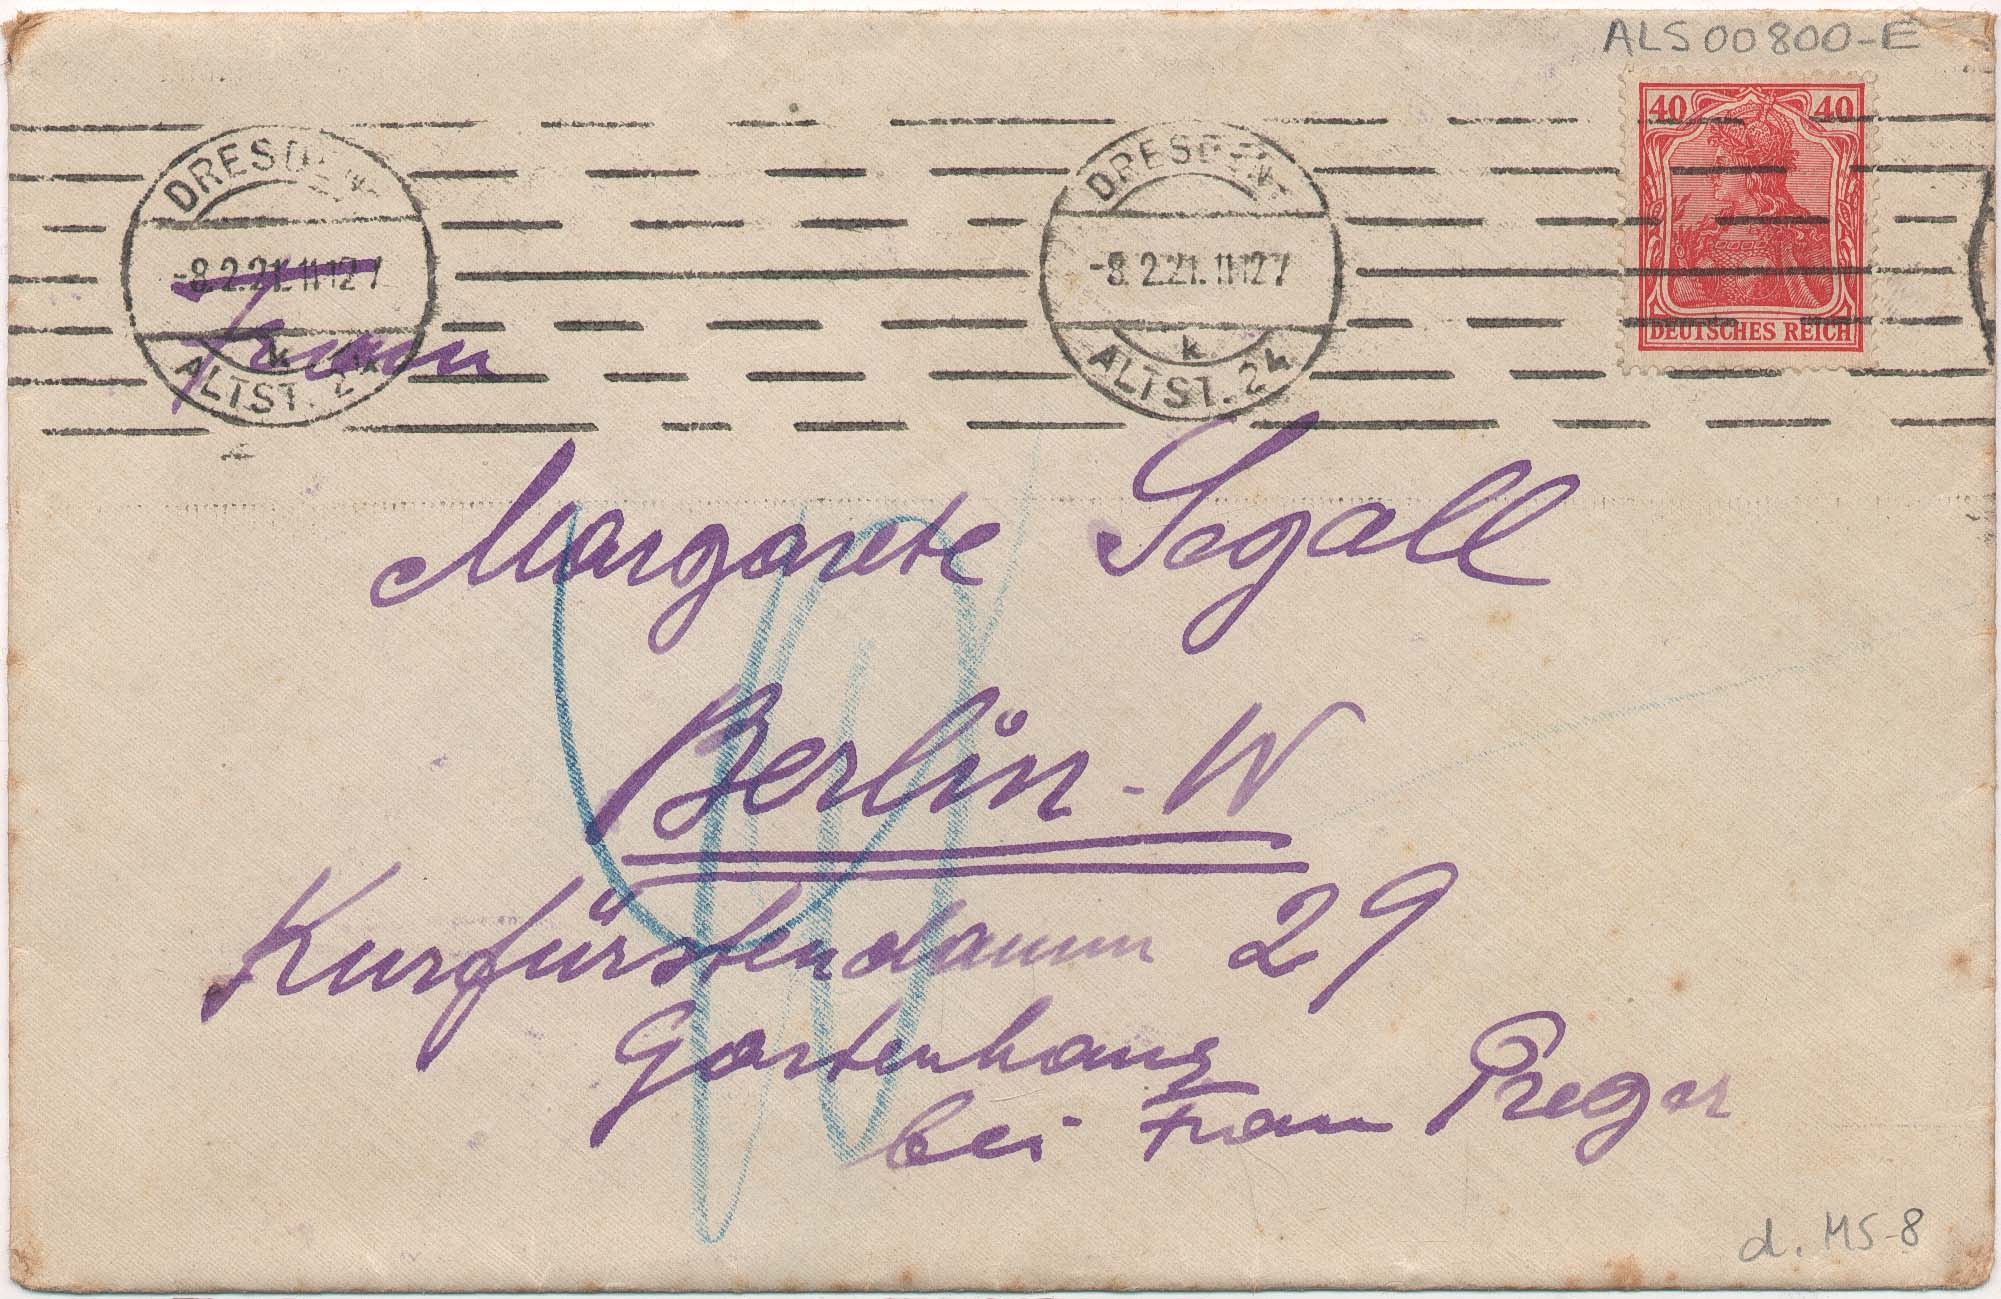 ALS 00800-E
40 40
DEUTSCHES REICH
DRESDEN
-8.2.21.11-12 V
k
ALTST. 24
DRESDEN
-8.2.21.11-12 V
k
ALTST. 24
Frau
Margarete Segall
Berlin-W
Kurfürstendamm 29
Gartenhaus
bei Frau Preger
d. MS-8